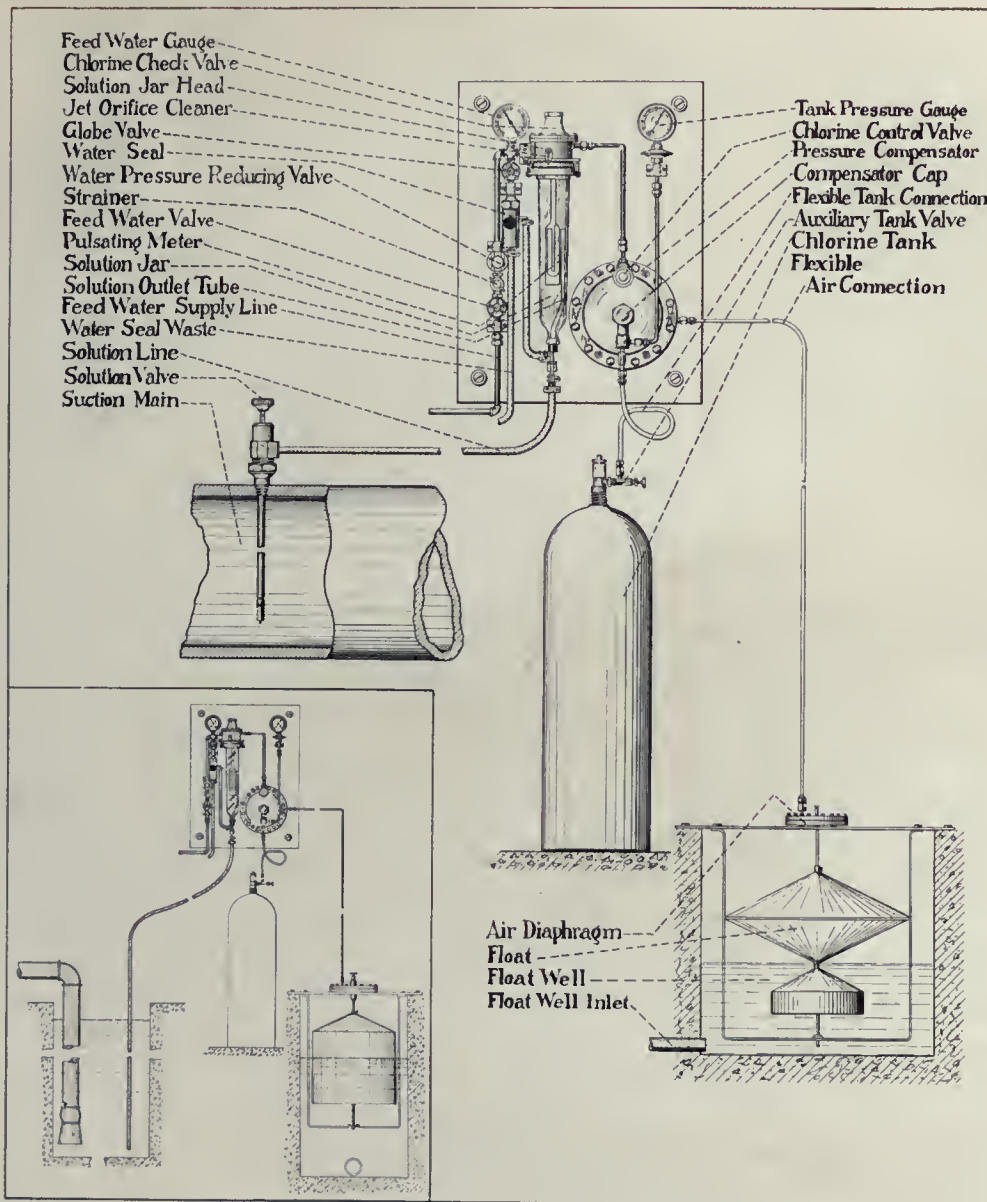 Feed Water Gauge
Chlorine Check Valve
Solution Jar Head
Jet Orifice Cleaner
Globe Valve
Water Seal
Water Pressure Reducing Valve
Strainer
Feed Water Valve
Pulsating Meter
Solution Jar
Solution Outlet Tube
Feed Water Supply Line
Water Seal Waste
Solution Line
Solution Valve
Suction Main
Tank Pressure Gauge
Chlorine Control Valve
Pressure Compensator
Compensator Cap
Flexible Tank Connection
Auxiliary Tank Valve
Chlorine Tank
Flexible
Air Connection
Air Diaphragm
Float
Float Well
Float Well Inlet